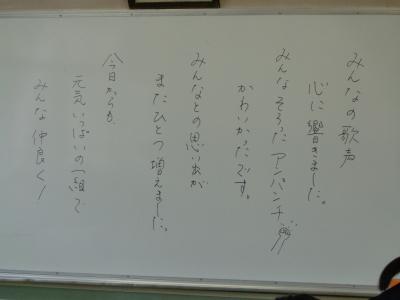 みんなの歌声
心に響きました。
みんなそろったアンパンチが
かわいかったです。
みんなとの思い出が
またひとつ増えました。
今日からも、
元気いっぱいの一組で
みんな仲良く!